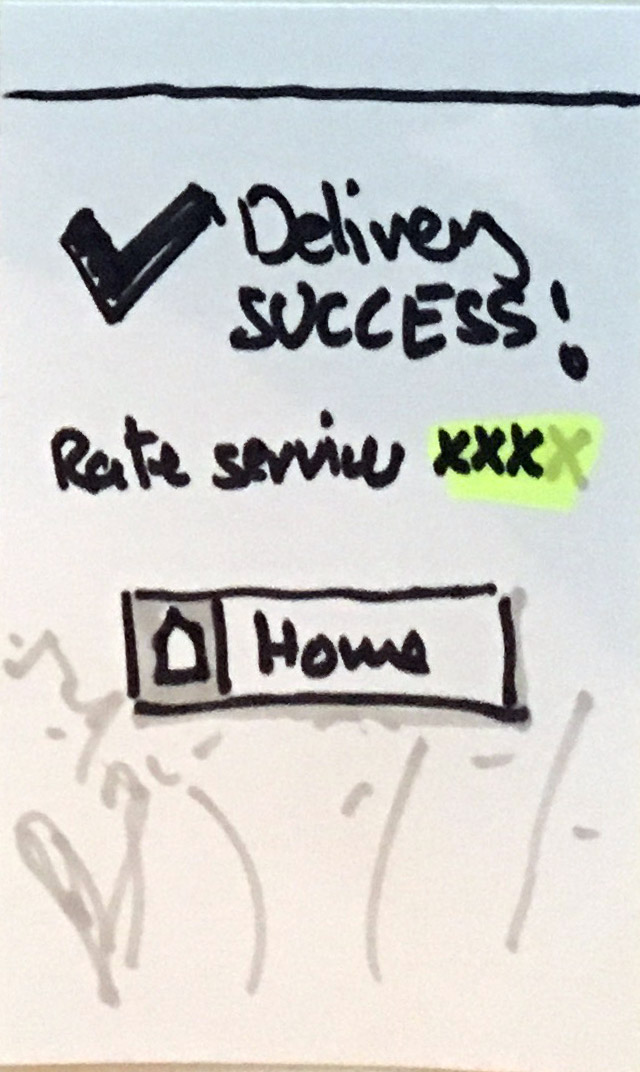 Delivery
SUCCESS!
Rate service xxxx
Home